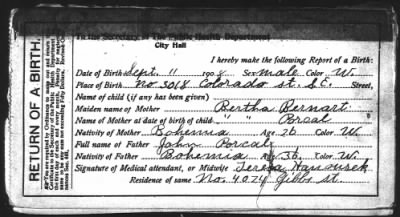 RETURN OF A BIRTH.
City Hall
I hereby make the following Report of a Birth:
Date of Birth Sept. 11 1908 Sex male Color W.
Place of Birth No 3018 Colorado st. S.E. Street,
Name of child (if any has been given)
Maiden name of Mother Bertha Bernart.
Name of Mother at date of birth of child. " " Porcal
Nativity of Mother Bohemia Age 26 Color W.
Full name of Father John Porcal
Nativity of Father Bohemia Age 36. Color W.
Signature of Medical attendant, or Midwife Teresa
Residence of same No. 4024 Gibbs st.